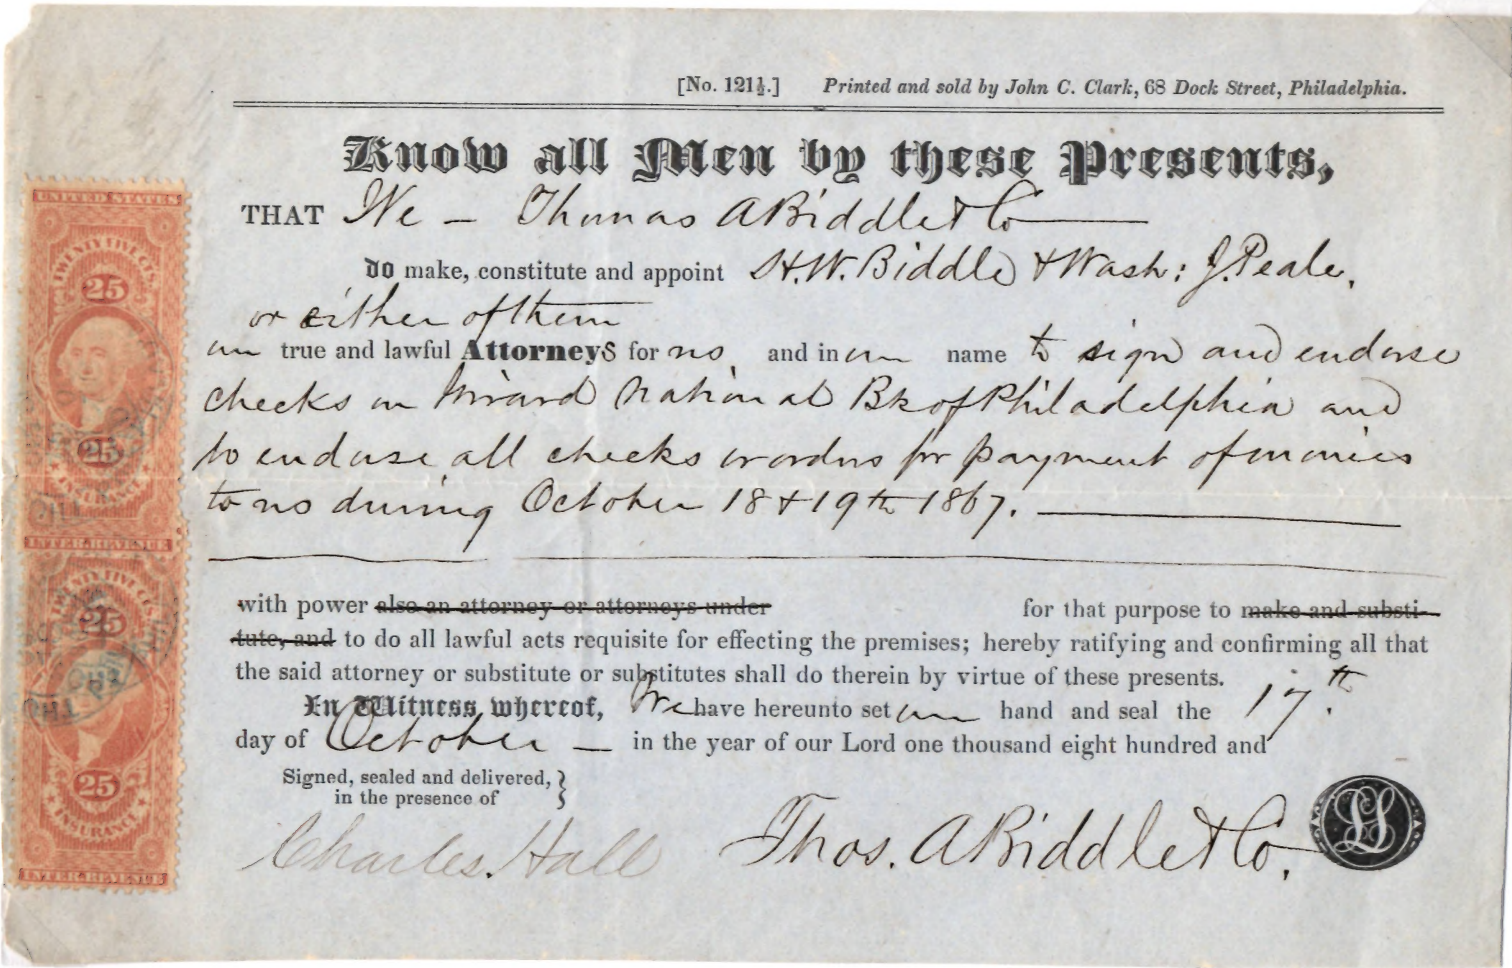 [No. 121½.] Printed and sold by John C. Clark, 68 Dock Street, Philadelphia.
Know all Men by these Presents,
THAT We – Thomas A Biddle & Co
do make, constitute and appoint H. W. Biddle & Wash: J. Peale,
or either of them
our true and lawful Attorneys for us and in our name to sign and endorse
checks on Girard National Bk of Philadelphia and
to endorse all checks or orders for payment of monies
to us during October 18 & 19th 1867.
with power also an attorney or attorneys under for that purpose to make and substi-
tute, and to do all lawful acts requisite for effecting the premises; hereby ratifying and confirming all that
the said attorney or substitute or substitutes shall do therein by virtue of these presents.
In Witness whereof, We have hereunto set our hand and seal the 17th.
day of October – in the year of our Lord one thousand eight hundred and
Signed, sealed and delivered,
in the presence of
Charles Hall
Thos. A Biddle & Co.
LS
UNITED STATES
TWENTY FIVE CENTS
25
25
INSURANCE
INTER. REVENUE
TWENTY FIVE CENTS
25
25
INSURANCE
INTER. REVENUE